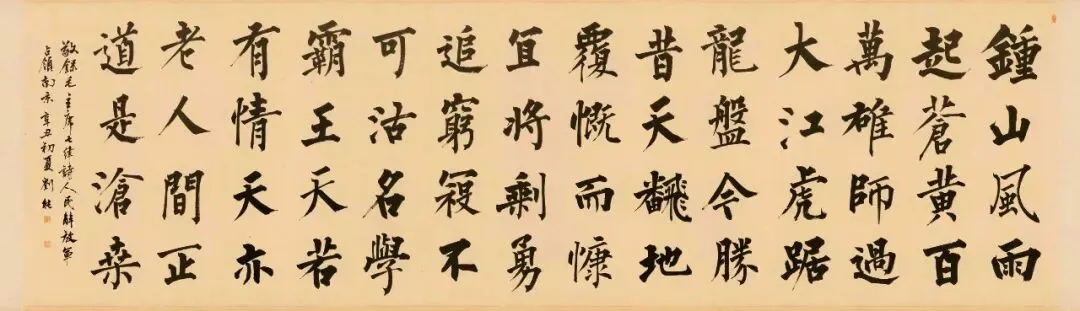 鍾山風雨
起蒼黃百
萬雄師過
大江虎踞
龍盤今勝
昔天飜地
覆慨而慷
宜將剩勇
追窮寇不
可沽名學
霸王天若
有情天亦
老人間正
道是滄桑
敬錄毛主席七律詩人民解放軍
占領南京 辛丑初夏 劉